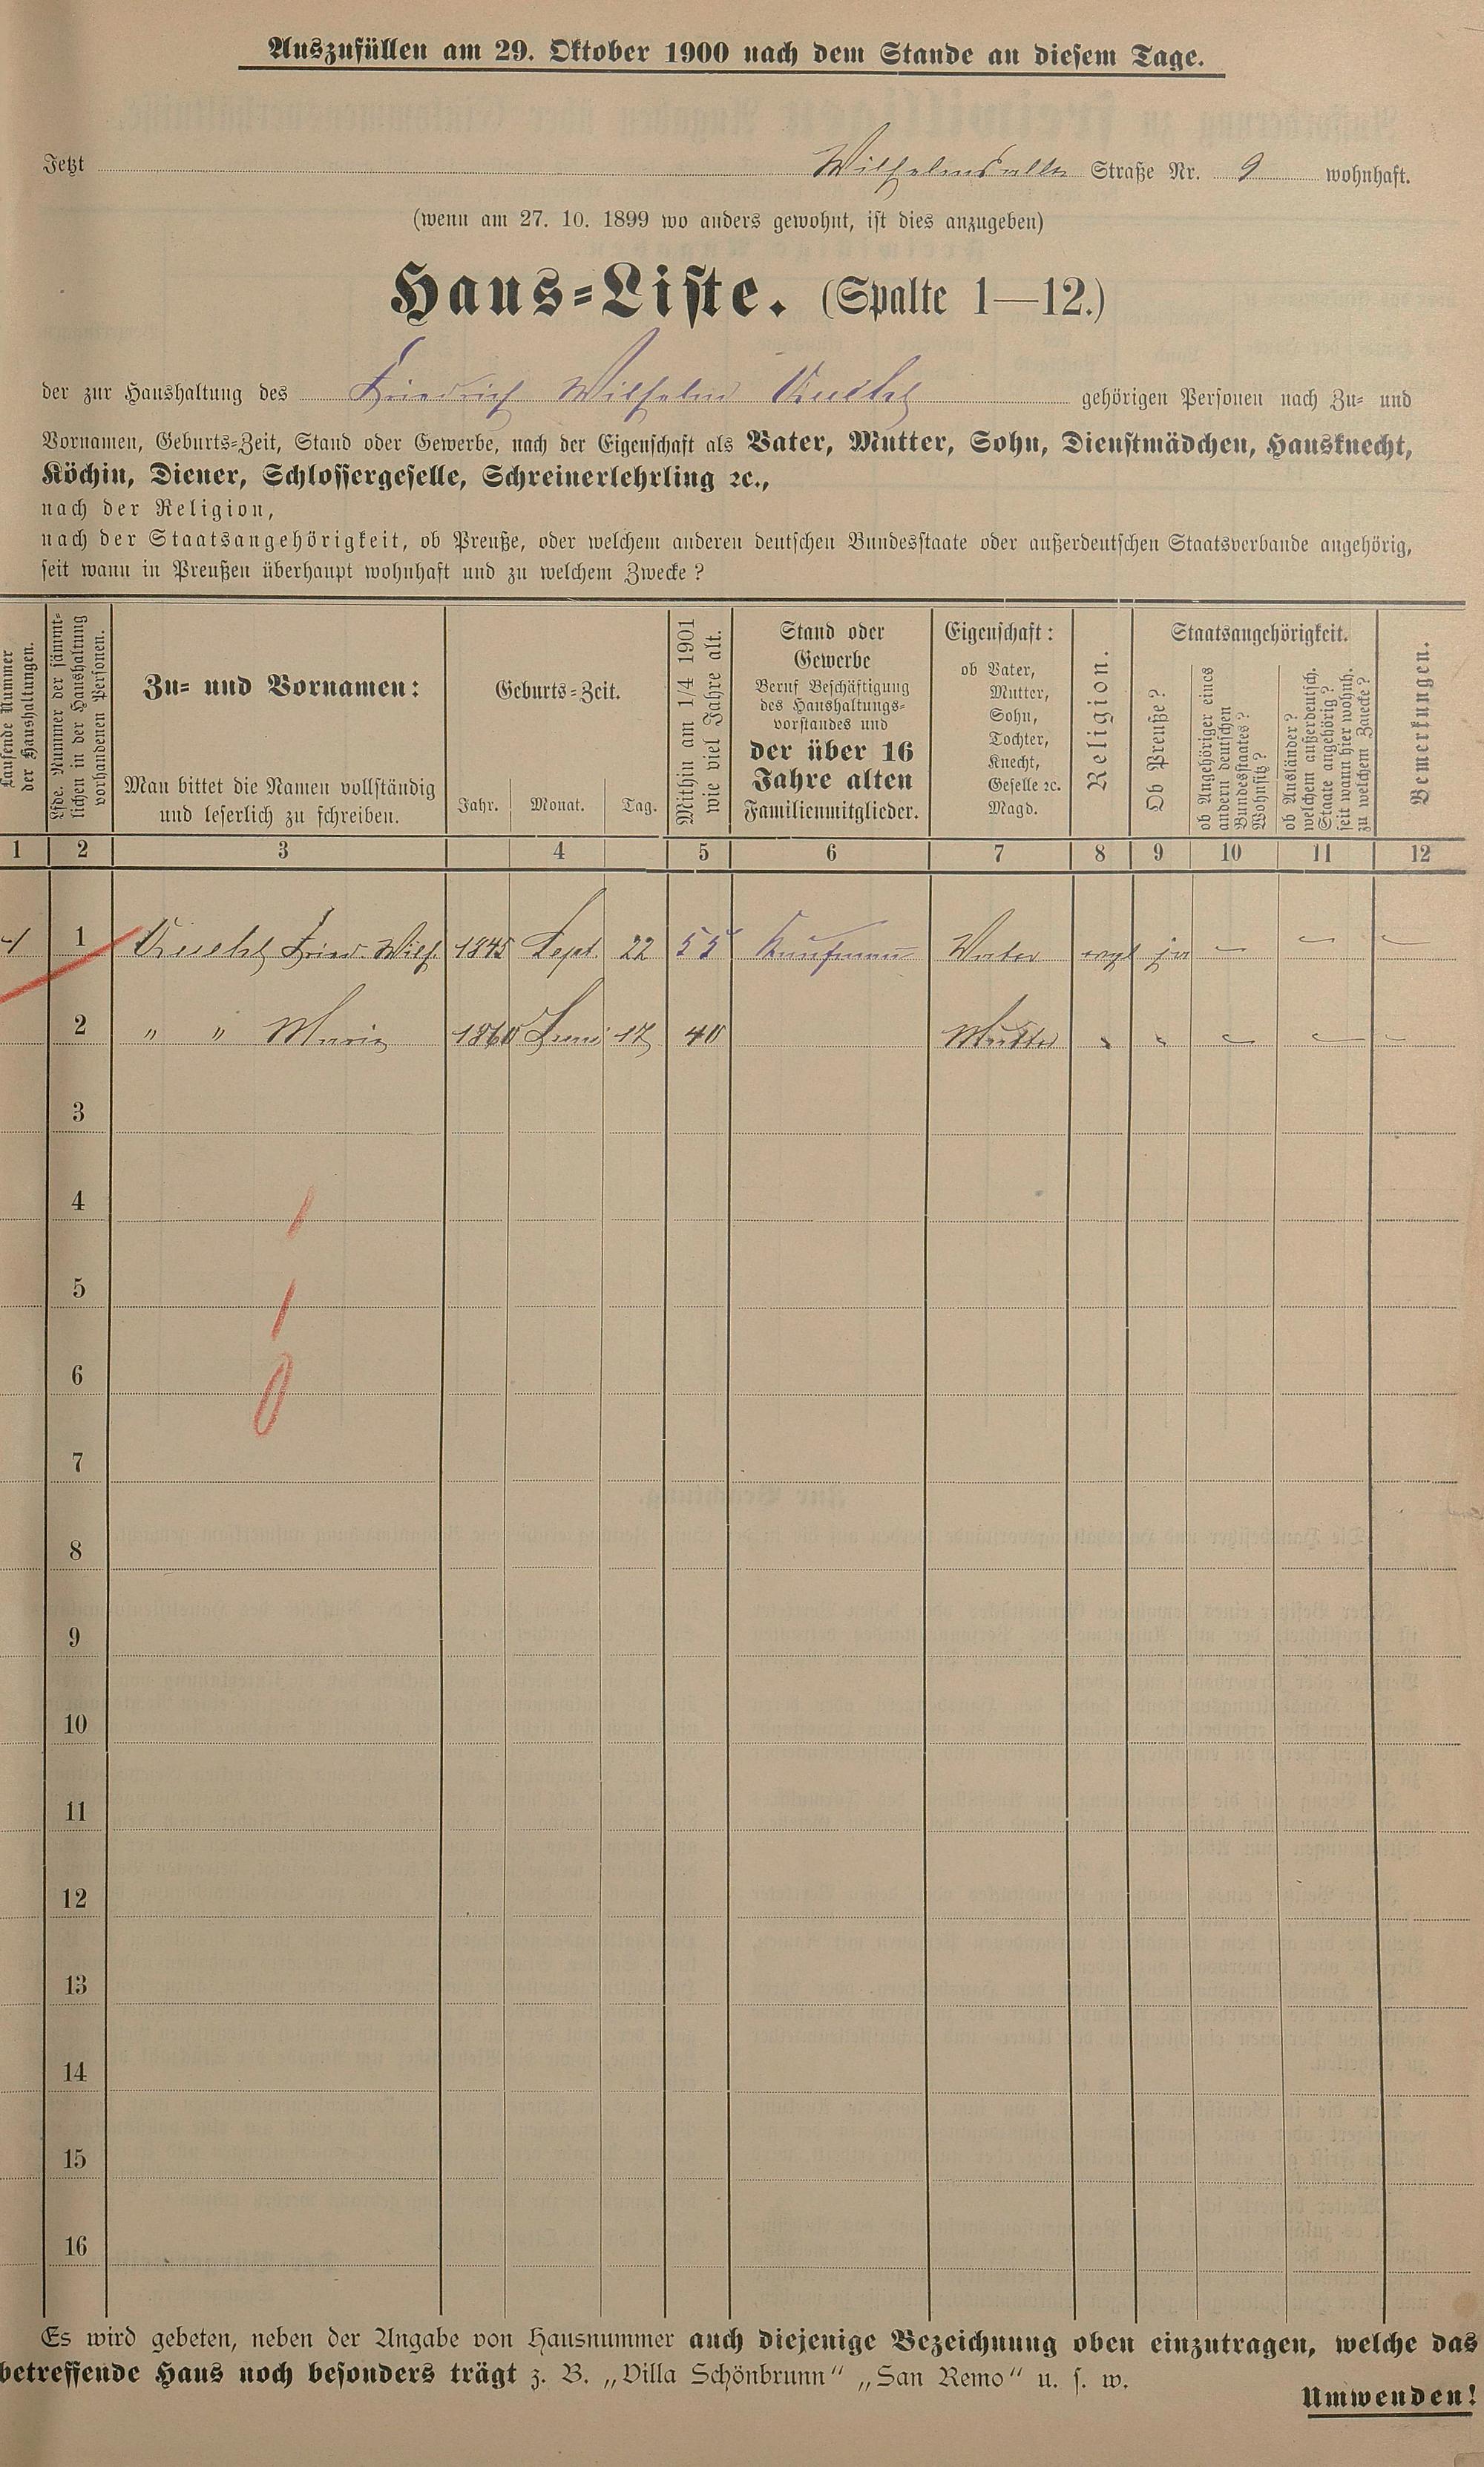 Auszufüllen am 29. Oktober 1900 nach dem Stande an diesem Tage.
Jetzt Wilhelmsallee Straße Nr. 9 wohnhaft.
(wenn am 27. 10. 1899 wo anders gewohnt, ist dies anzugeben)
Haus-Liste. (Spalte 1—12.)
der zur Haushaltung des Friedrich Wilhelm gehörigen Personen nach Zu- und
Vornamen, Geburts-Zeit, Stand oder Gewerbe, nach der Eigenschaft als Vater, Mutter, Sohn, Dienstmädchen, Hausknecht,
Köchin, Diener, Schlossergeselle, Schreinerlehrling ꝛc.,
nach der Religion,
nach der Staatsangehörigkeit, ob Preuße, oder welchem anderen deutschen Bundesstaate oder außerdeutschen Staatsverbande angehörig,
seit wann in Preußen überhaupt wohnhaft und zu welchem Zwecke?
Laufende Nummer
der Haushaltungen.
Lfde. Nummer der sämmt-
lichen in der Haushaltung
vorhandenen Personen.
Zu- und Vornamen:
Man bittet die Namen vollständig
und leserlich zu schreiben.
Geburts-Zeit.
Jahr. Monat. Tag.
Mithin am 1/4 1901
wie viel Jahre alt.
Stand oder
Gewerbe
Beruf Beschäftigung
des Haushaltungs-
vorstandes und
der über 16
Jahre alten
Familienmitglieder.
Eigenschaft:
ob Vater,
Mutter,
Sohn,
Tochter,
Knecht,
Geselle ꝛc.
Magd.
Religion.
Staatsangehörigkeit.
Ob Preuße?
ob Angehöriger eines
andern deutschen
Bundesstaates?
Wohnsitz?
ob Ausländer?
welchem außerdeutsch.
Staate angehörig?
seit wann hier wohnh.
zu welchem Zwecke?
Bemerkungen.
1 2 3 4 5 6 7 8 9 10 11 12
1 1 Fried. Wilh. 1845 Sept. 22 55 Kaufmann Vater evgl ja — — —
2 " " Maria 1860 Juni 17 40 Mutter " " — — —
3
4
5
6
7
8
9
10
11
12
13
14
15
16
Es wird gebeten, neben der Angabe von Hausnummer auch diejenige Bezeichnung oben einzutragen, welche das
betreffende Haus noch besonders trägt z. B. „Villa Schönbrunn" „San Remo" u. s. w.
Umwenden!